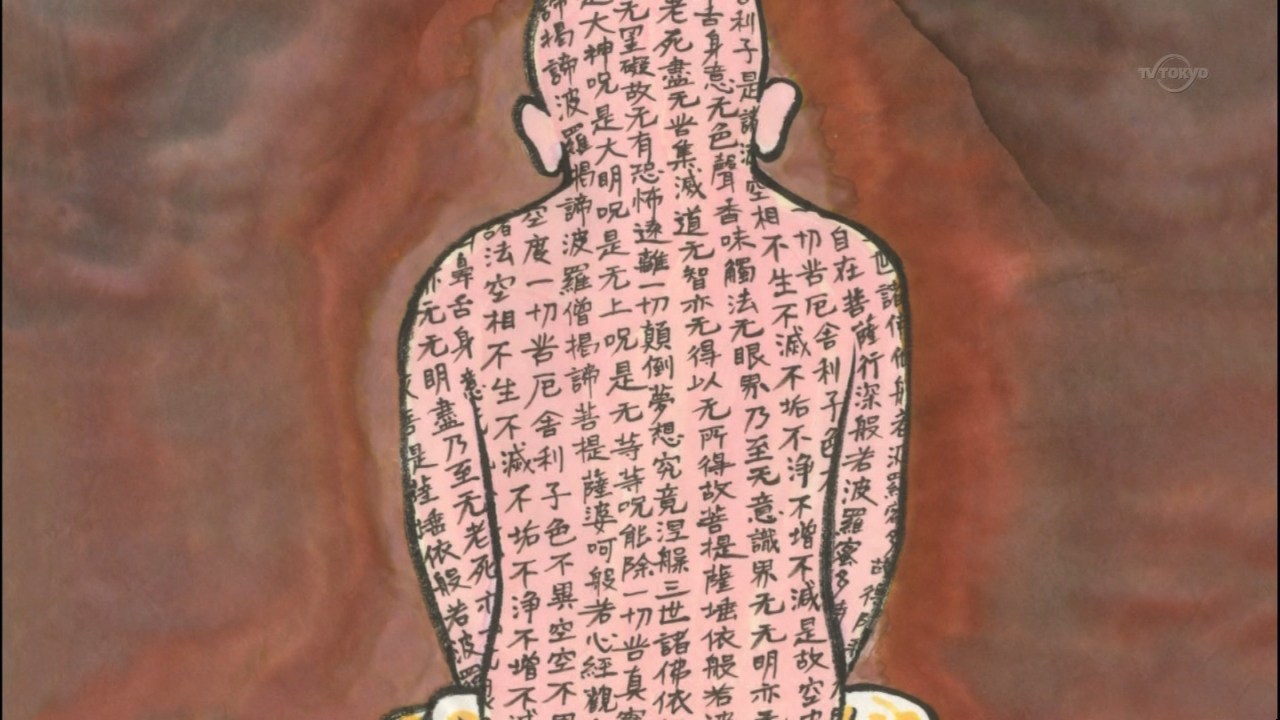 TV TOKYO
世諸佛依般若波羅蜜多故得阿
自在菩薩行深般若波羅蜜多
切苦厄舍利子色不
利子是諸法空相不生不滅不垢不净不增不减是故空
舌身意无色聲香味觸法无眼界乃至无意識界无无明亦无
老死盡无苦集滅道无智亦无得以无所得故菩提薩埵依般若波
无罣礙故无有恐怖遠離一切顛倒夢想究竟涅槃三世諸佛依
是大神呪是大明呪是无上呪是无等等呪能除一切苦真實
諦揭諦波羅揭諦波羅僧揭諦菩提薩婆呵般若心經觀
空度一切苦厄舍利子色不異空空不異
諸法空相不生不滅不垢不净不增不减
鼻舌身意
亦无无明盡乃至无老死亦
菩提薩埵依般若波羅